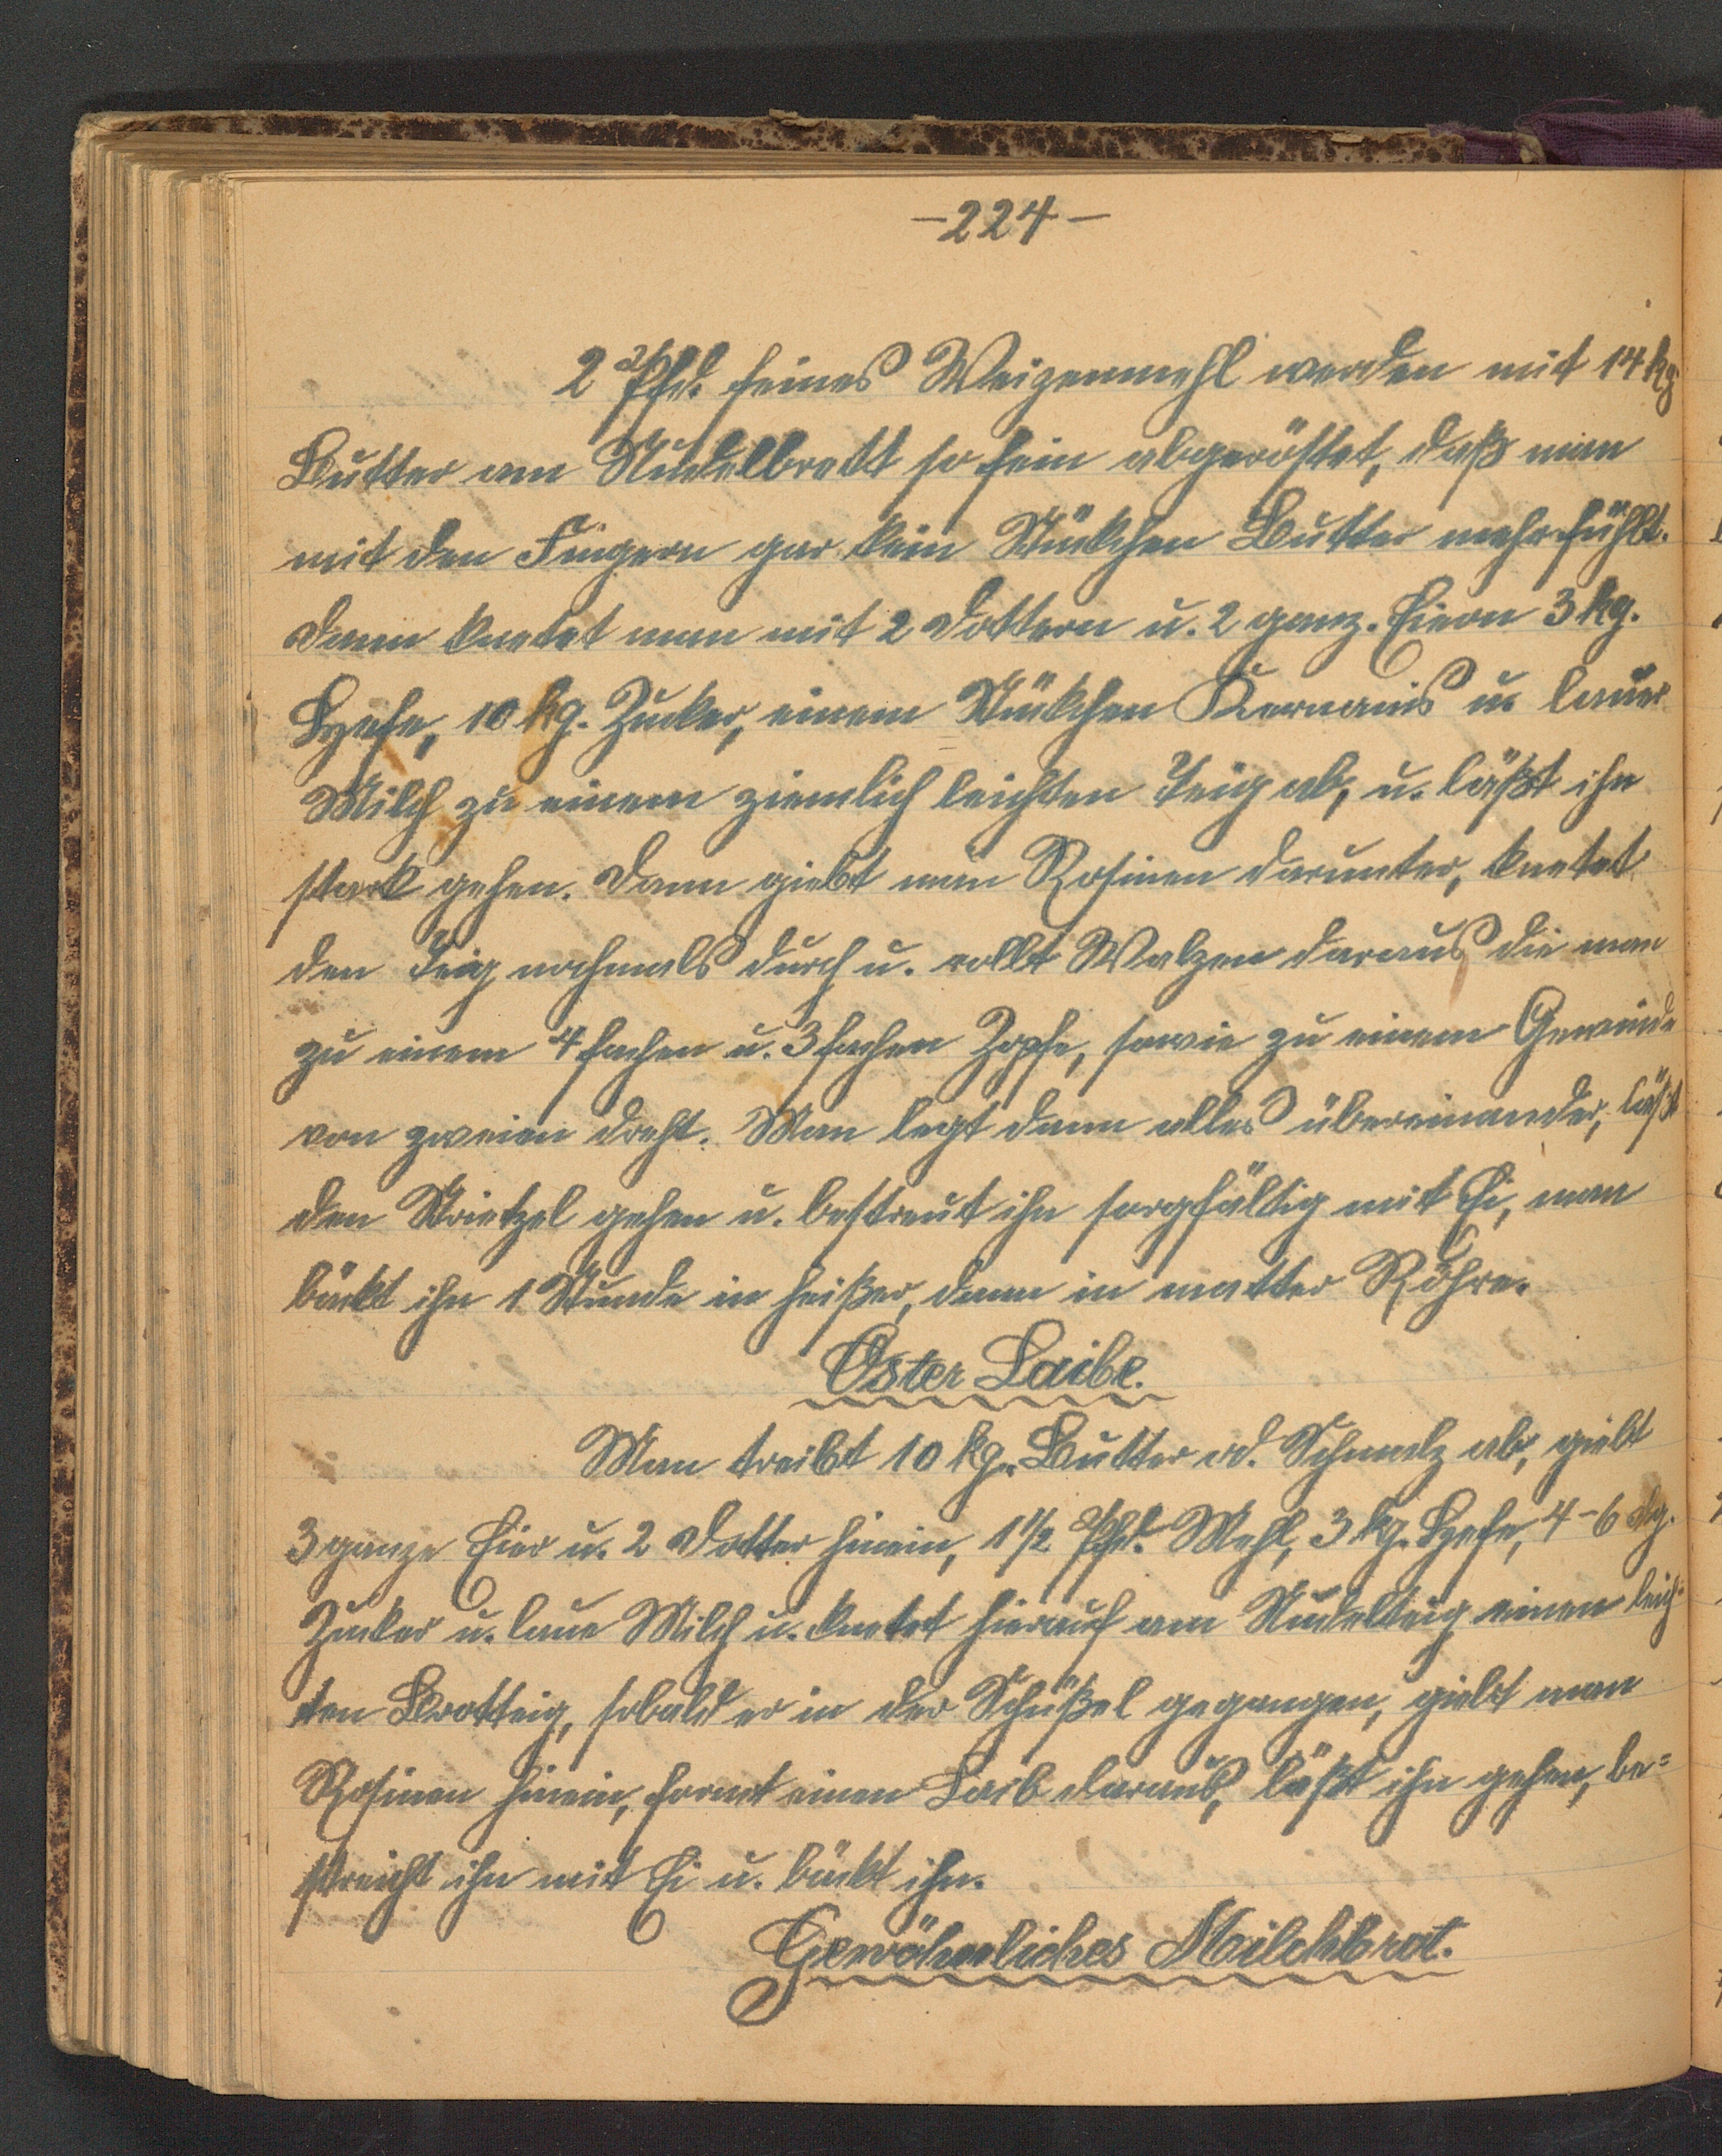 -224-
2 Pfd. feines Weizenmehl werden mit 14 kg
Butter am Nudelbrett so fein abgeröstet, daß man
mit den Fingern gar kein Stükchen Butter mehr fühlt.
Dann knetet man mit 2 Dottern u. 2 ganz. Eiern 3 kg.
Hefe, 10 kg. Zucker, einem Stükchen u. lauer
Milch zu einem ziemlich leichten Teig ab, u. läßt ihn
stark gehen. Dann giebt man Rosinen darunter, knetet
den Teig nochmals durch u. rollt Walzen daraus die man
zu einem 4 fachen u. 3 fachen Zopfe, sowie zu einem Gewinde
von zweien dreht. Man legt dann alles übereinander, läßt
den Strietzel gehen u. bestreut ihn sorgfältig mit Ei, man
bäckt ihn 1 Stunde in heißer, dann in matter Röhre.
Oster Laibe.
Man treibt 10 kg. Butter od. Schmalz ab, giebt
3 ganze Eier u. 2 Dotter hinein, 1 1/2 Pfd. Mehl, 3 kg. Hefe, 4-6 dg.
Zucker u. laue Milch u. knetet hierauf am Nudelteig einen leich-
ten Brotteig, sobald er in der Schüßel gegangen, giebt man
Rosinen hinein, formt einen Laib daraus, läßt ihn gehen, be=
streicht ihn mit Ei u. bäckt ihn.
Gewöhnliches Milchbrot.